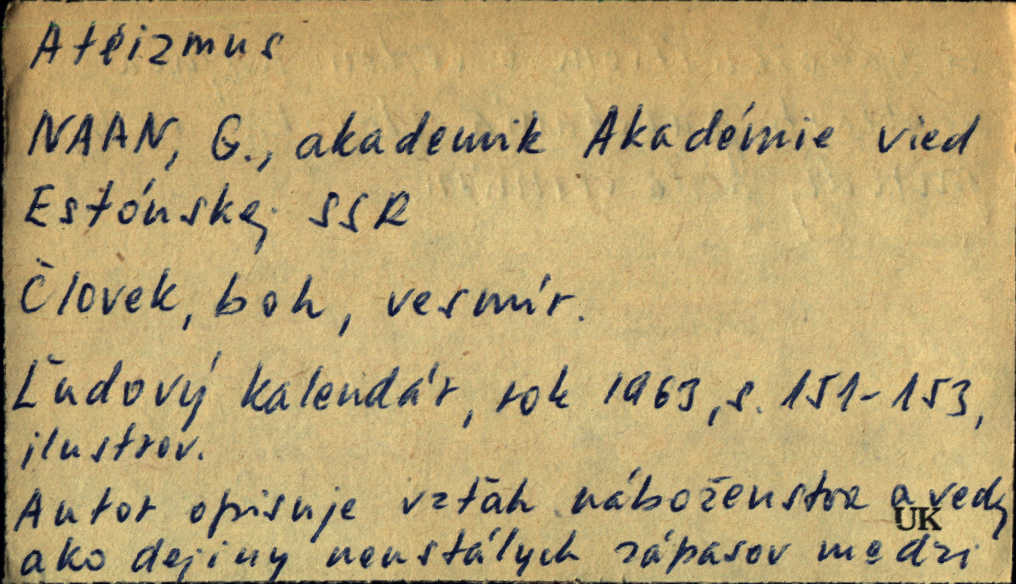 Atéizmus
NAAN, G., akademik Akadémie vied
Estónskej SSR
Človek, boh, vesmír.
Ľudový kalendár, rok 1963, s. 151-153,
ilustrov.
Autor opisuje vzťah náboženstva a vedy
UK
ako dejiny neustálych zápasov medzi